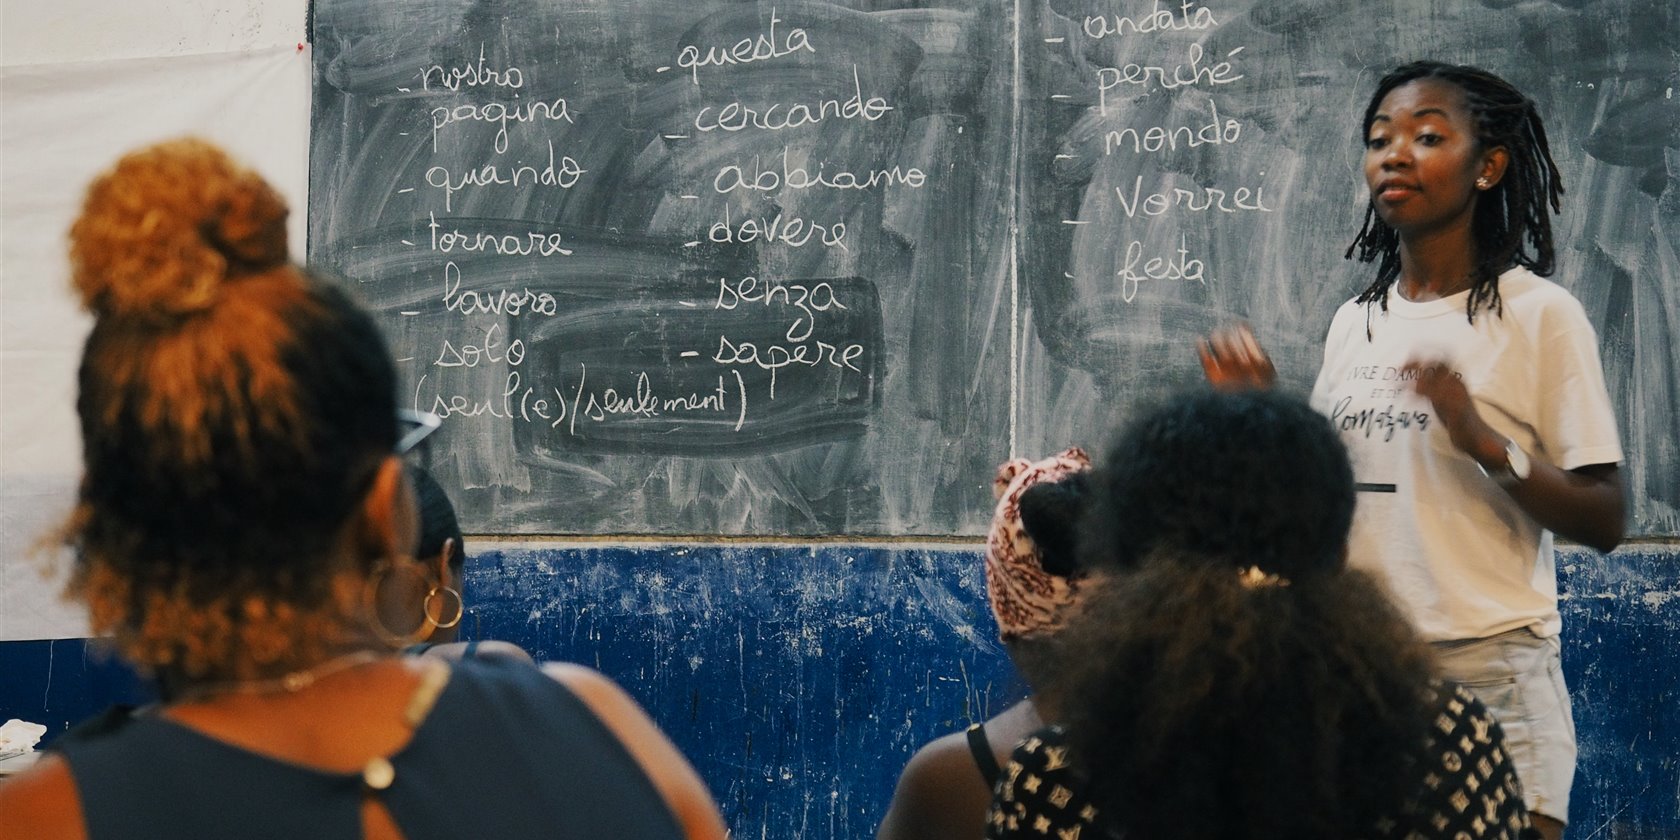 - nostro
- pagina
- quando
- tornare
- lavoro
- solo
(seul(e)/seulement)
- questa
- cercando
- abbiamo
- dovere
- senza
- sapere
- andata
- perché
- mondo
- Vorrei
- festa
ET DE
Romazava